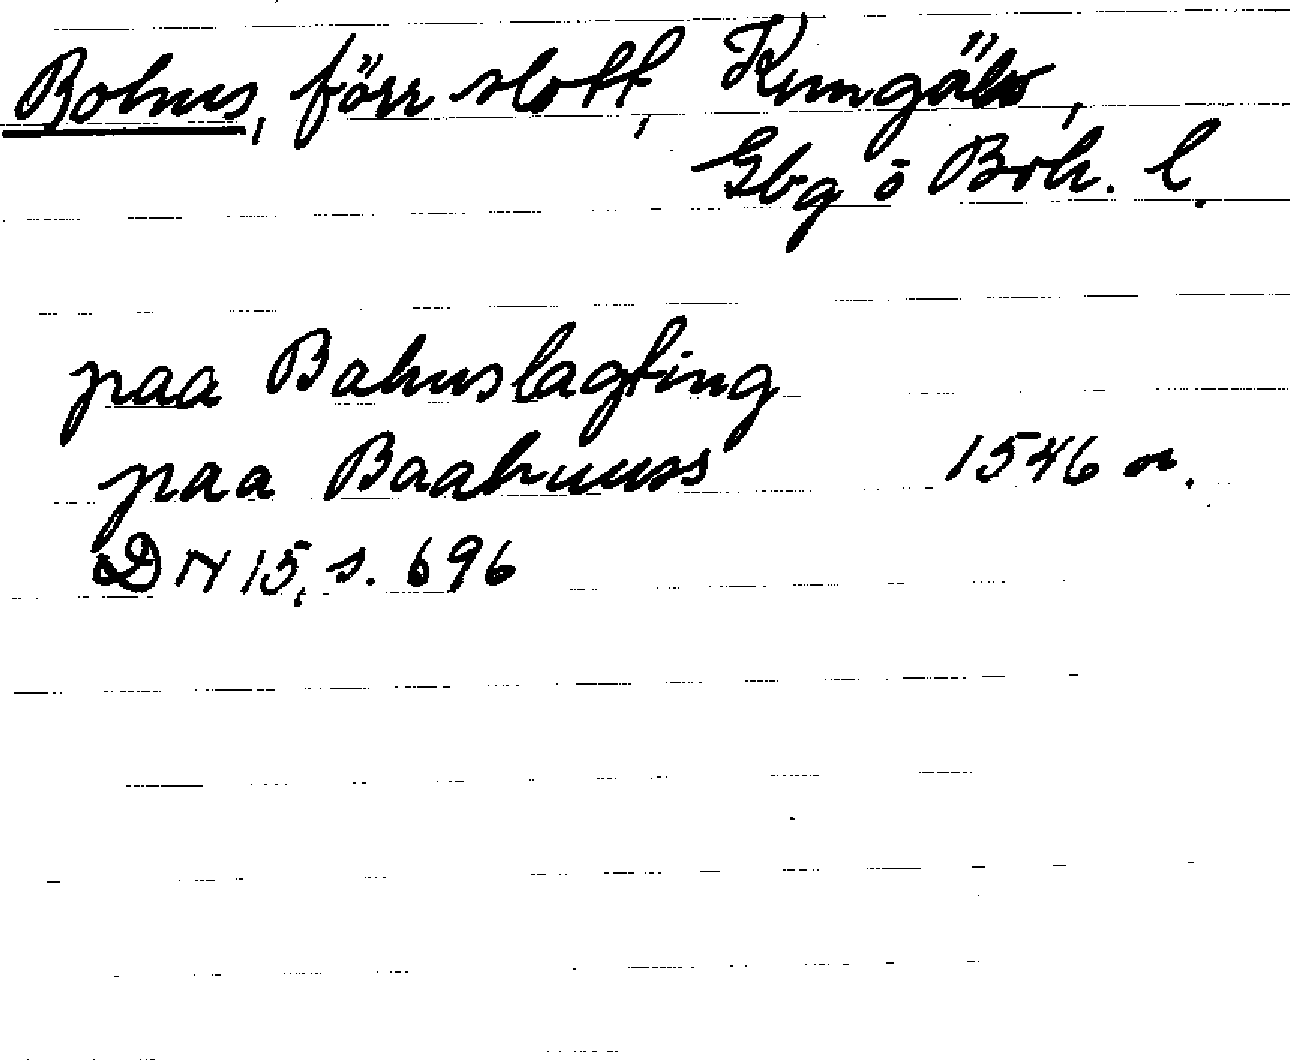 Bohus, förr slott, Kungälv,
Gbg o Boh. l.
paa Bahuslagting
paa Baahuuss 1546 or.
DN 15, s. 696